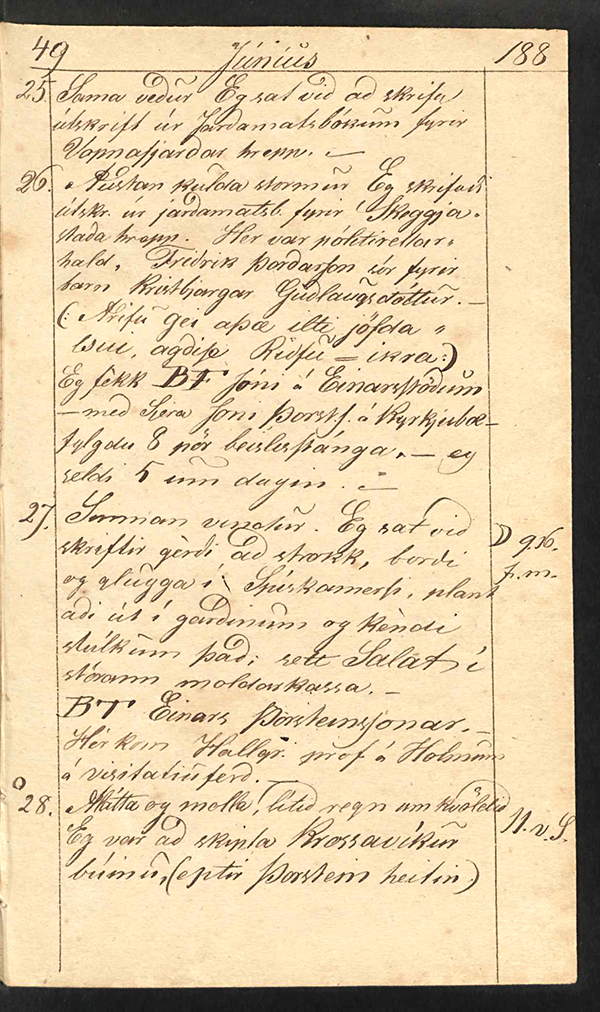 49 Júníus 188
25. Sama vedur Eg sat vid ad skrifa
útskrift úr Jardamatsbókum fyrir
Vopnafjardar hrepp. —
26. Austan kulda stormur Eg skrifadi
útskr. úr jardamatsb. fyrir Skeggja-
stada hrepp. Her var pólitirettar-
hald, Fridrik Þordarson sór fyrir
barn Kristbjargar Gudlaugsdóttur. —
Eg fékk BT Jóni á Einarsstödum
— med Séra Joni Þorstss. á Kyrkjubæ —
fylgdu 8 pör beislisstanga. — eg
seldi 5 um daginn. —
27. Sunnan vindur. Eg sat vid
skriftir gérdi ad strokk, bordi
og glugga í Spískamersi, plant
adi út í gardinum og kéndi
stúlkum þad; sett Salat í
stórann moldarkassa. —
BT Einars Þorsteinssonar. —
Hér kom Hallgr. prof. á Hólmum
á visitatiuferd. —
28. Mátta og molla, litid regn um kvöldid
Eg var ad skipta Krossavíkur
búinu, (eptir Þorstein heitin.)
9.16.
f.m.